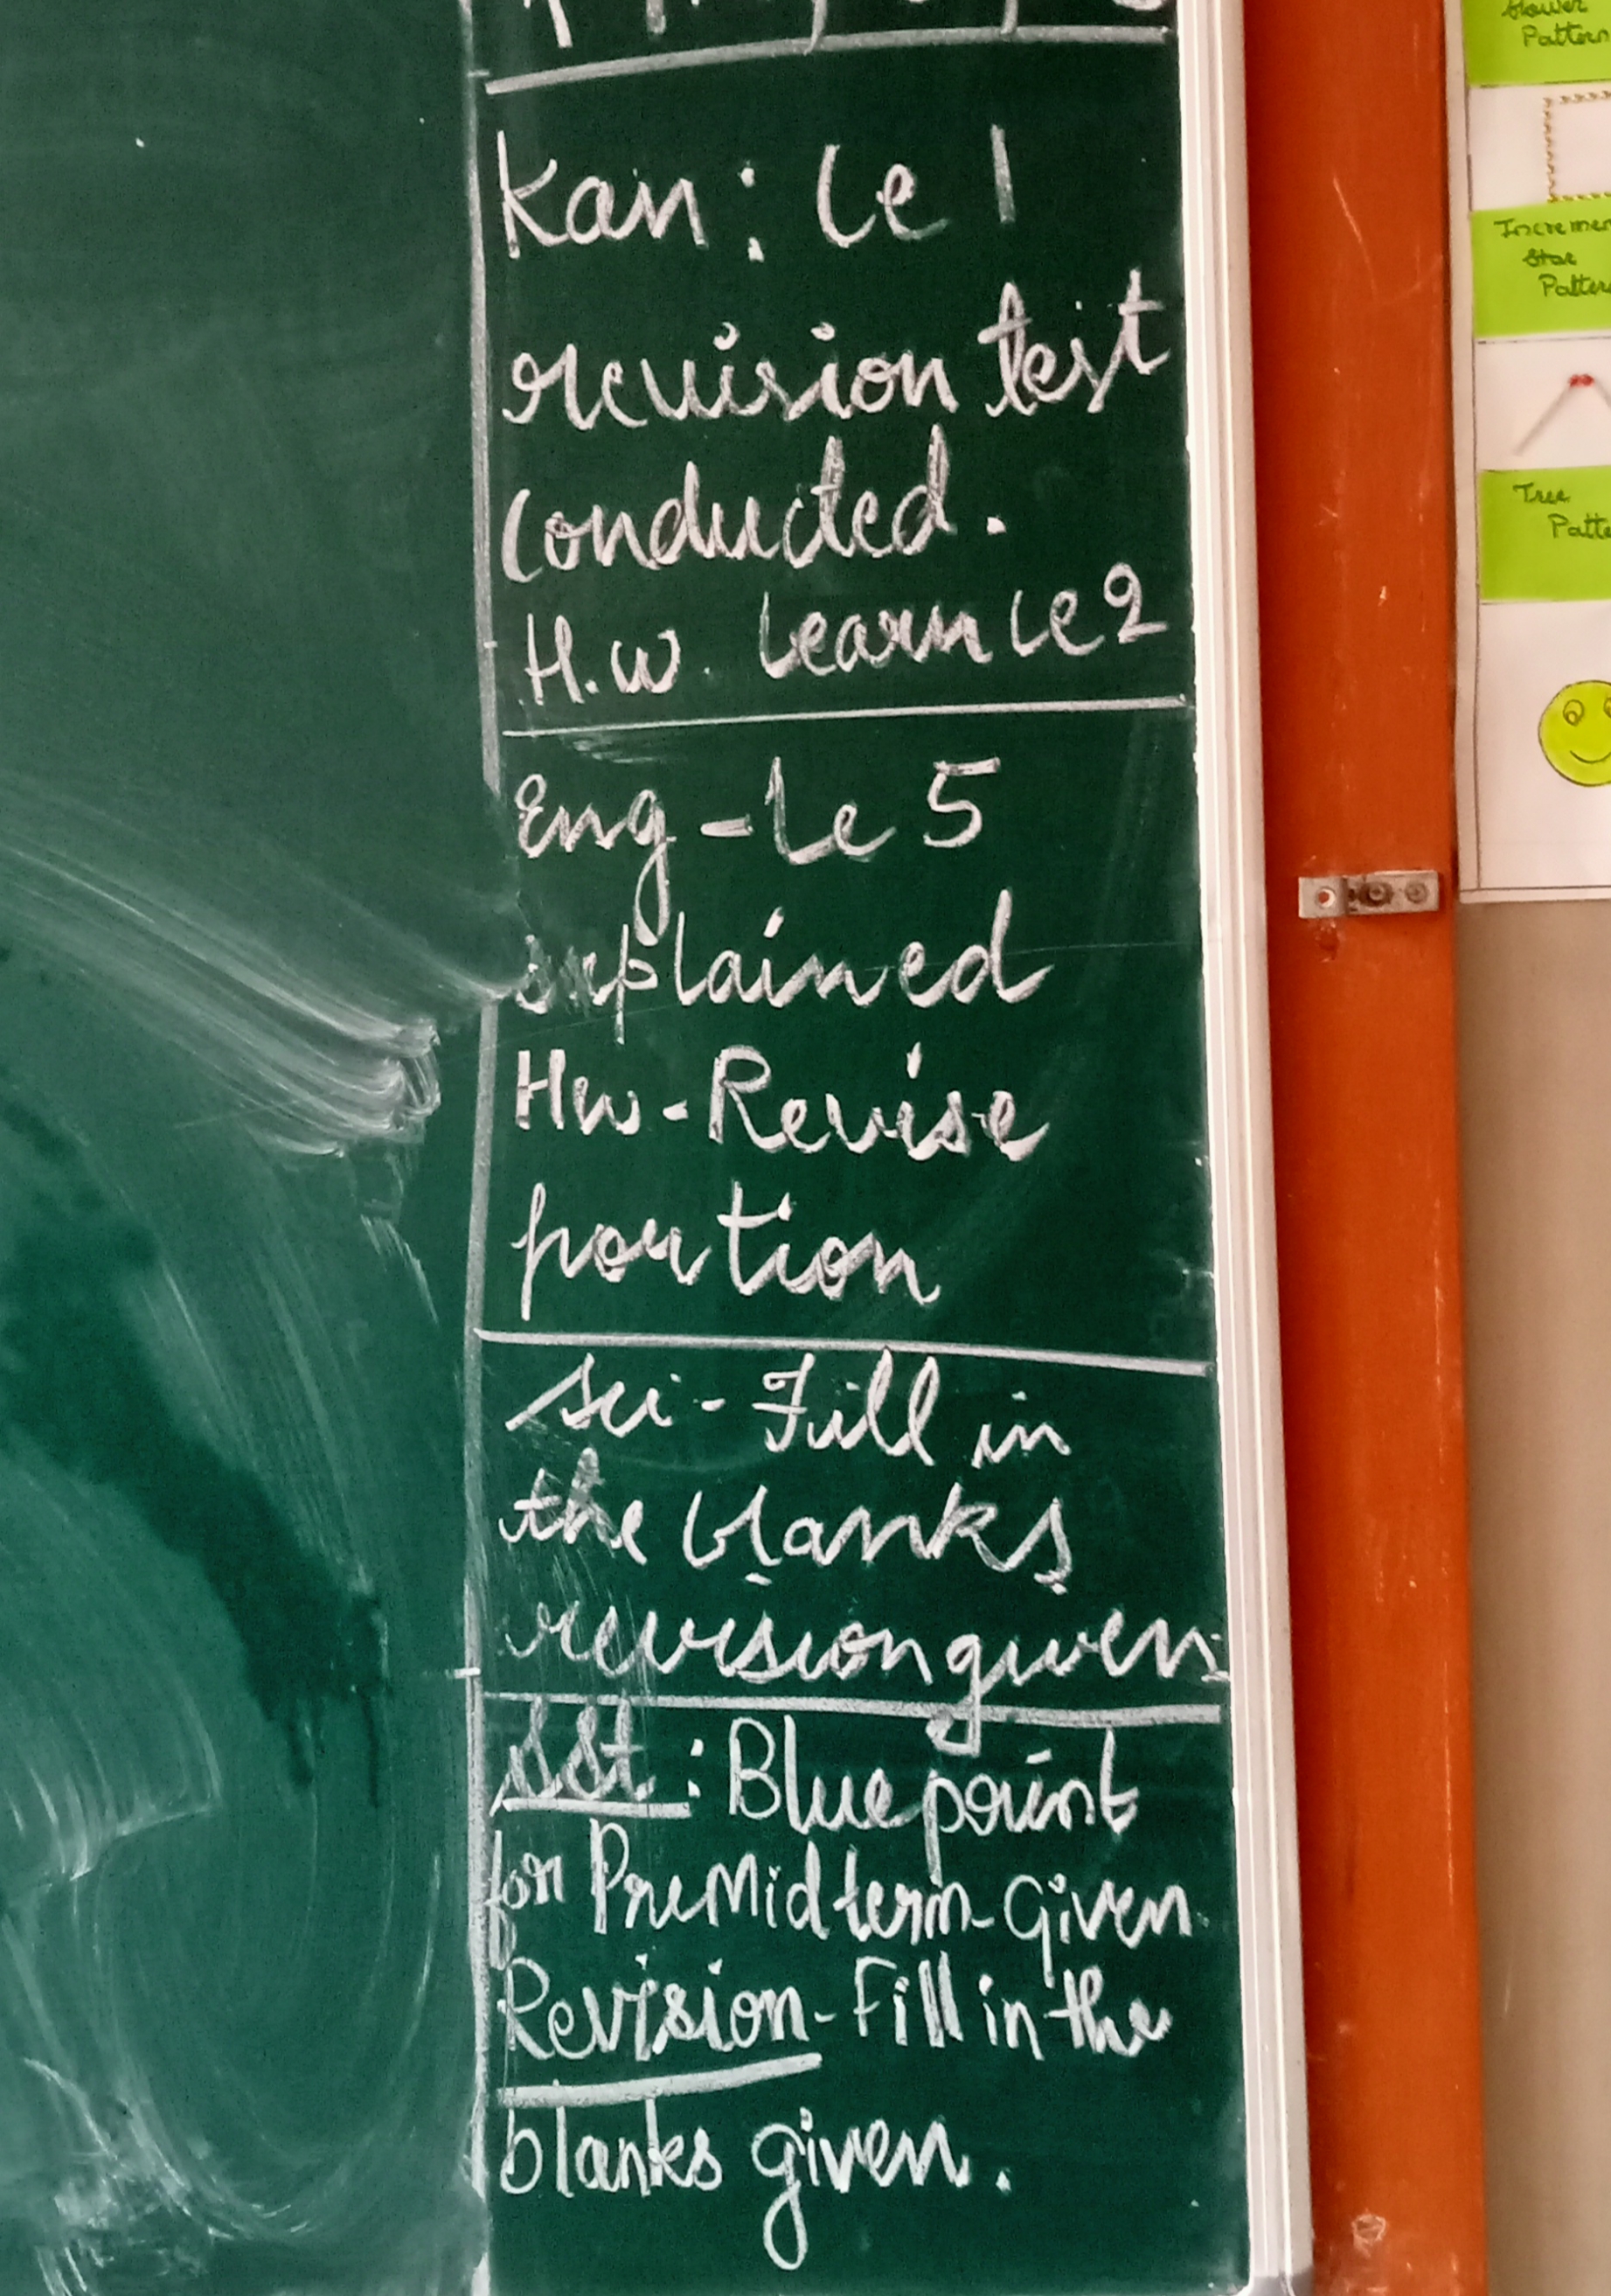 Kan: Le 1
revision test
conducted.
H.W. Learn Le 2
Eng - Le 5
explained
Hw - Revise
portion
Sci - Fill in
the blanks
revision given
SSt : Blue point
for PreMidterm - Given
Revision - Fill in the
blanks given.
flower
Pattern
Incremen
Star
Pattern
Tree
Patte